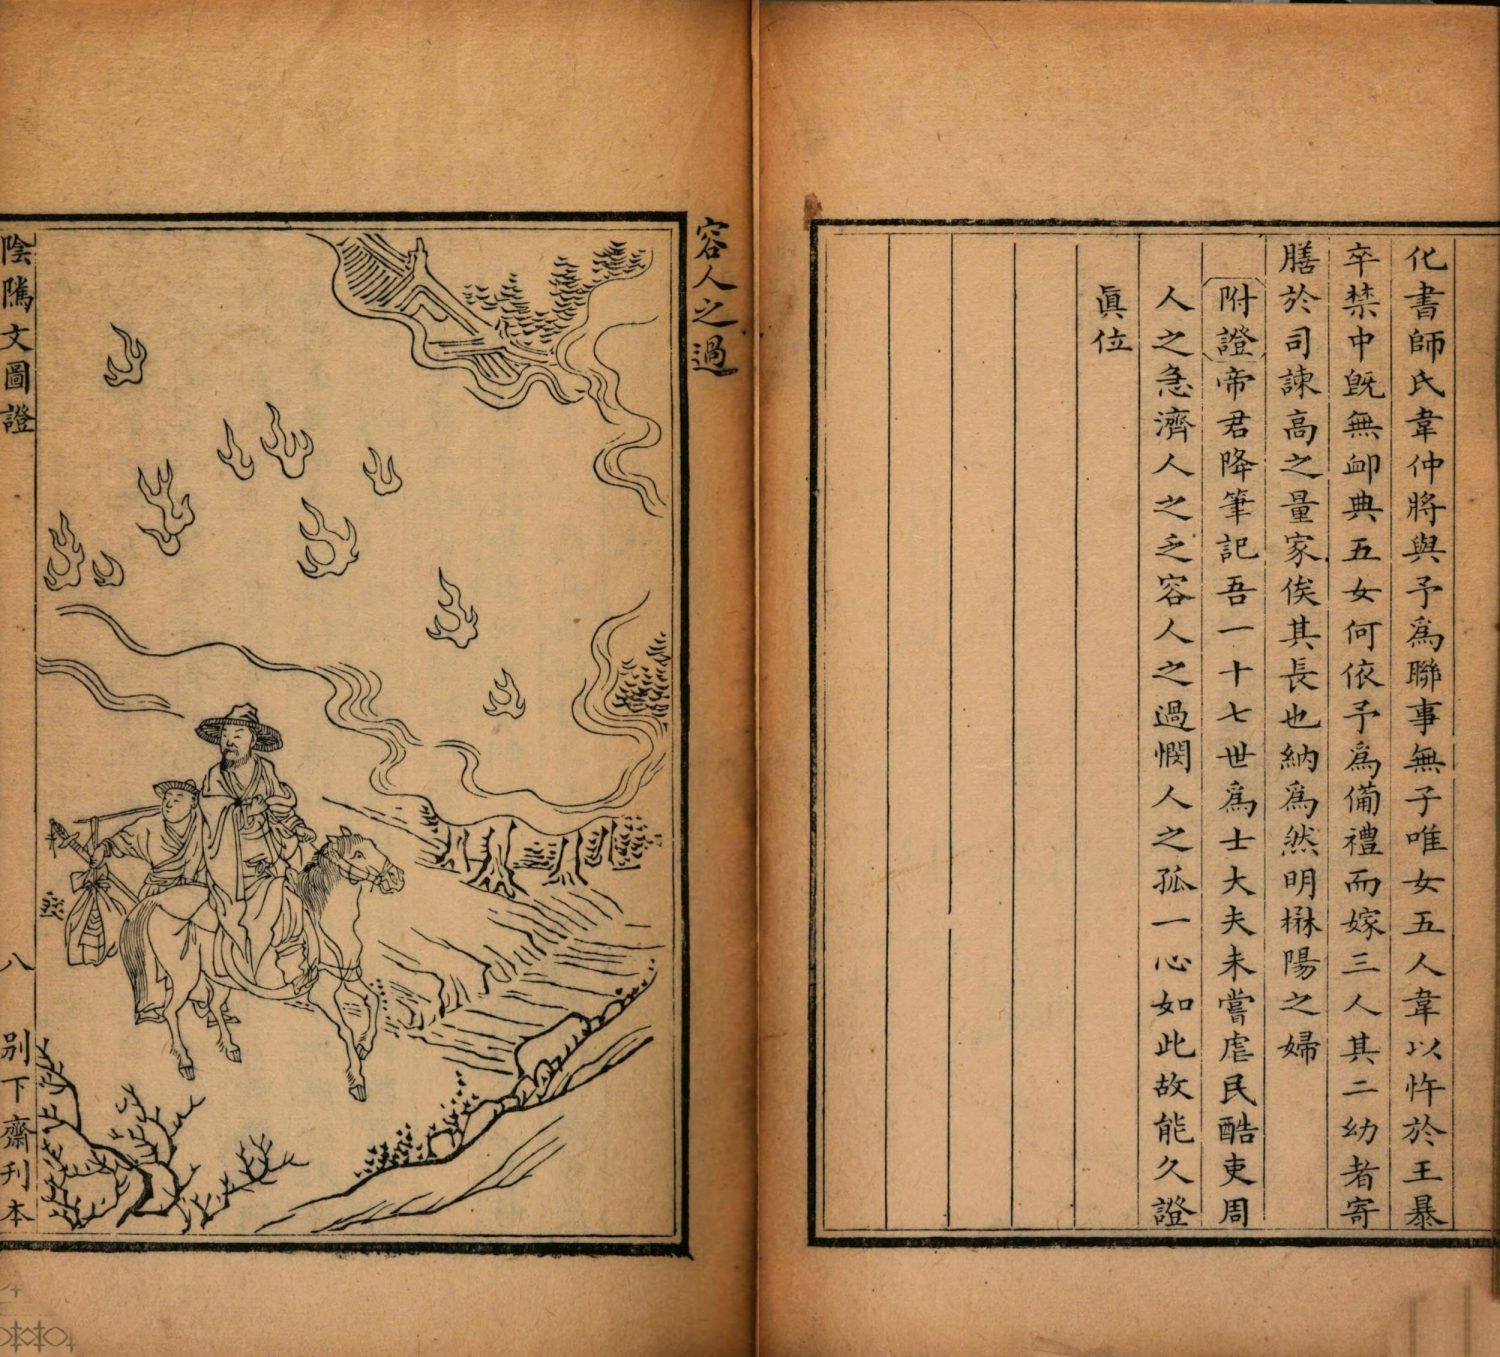 化書師氏韋仲將與予爲聯事無子唯女五人韋以忤於王暴
卒禁中旣無卹典五女何依予爲備禮而嫁三人其二幼者寄
膳於司諫高之量家俟其長也納爲然明楙陽之婦
附證帝君降筆記吾一十七世爲士大夫未嘗虐民酷吏周
人之急濟人之乏容人之過憫人之孤一心如此故能久證
眞位
容人之過
陰隲文圖證
八
別下齋刋本